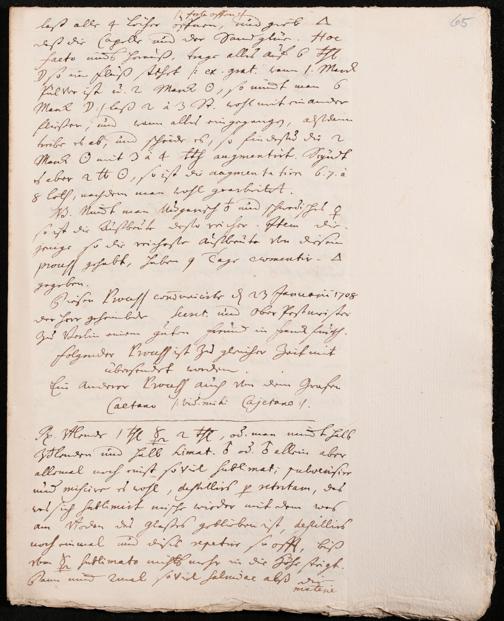 65
laß alle 4 Löcher offnen, und gieb △
daß die Capelle und der Sand glüe. Hoc
facto nimbs heraus, trage alles auf 6 ℔
so im Fluß stehet /: ex. grat. wann 1. Marck
Pulver ist u. 2 Marck ☉, so nimbt man 6
Marck ☽ / laß 2 à 3 St. wohl mit ein ander
fließen, und wann alles eingegangen, alsdann
treibe es ab, und scheide es, so findestu die 2
Marck ☉ mit 3 à 4 augmentirt. Seyndt
es aber 2 ℔ ☉, so ist die augmentation 6. 7. à
8 loth, nachdem man wohl gearbeitet.
NB. Nimbt man Ungarisch ♁ und
so ist die Außbeute desto reicher. Item die
jenige so die reicheste Außbeute von diesem
process gehabt, haben 9 Tage △
gegeben.
Diesen Process communicirte d. 23 Januarii 1708
der Herr geheimbde Secret. und Ober Postmeister
zu Berlin einem guten freund in
folgender Process ist zu gleicher Zeit mit
übersendet worden.
Ein Anderer Process auch von dem Grafen
Caetano /: vid. mihi Cajetano :/.
Rp. 1 ℔ 2 ℔, od. man nimbt halb
und halb limat. ♁ od. ♁ allein aber
allemal noch einst so viel sublimat; pulverisire
und mischire es wohl, destillirs p retortam, das
was sich sublimirt mische wieder mit dem was
am Boden des glases geblieben ist, destillirs
noch einmal und dieses repetire so offt, biß
vom sublimato nichts mehr in die Höhe steigt.
dann nimb 2mal so viel salmiac alß die
materie